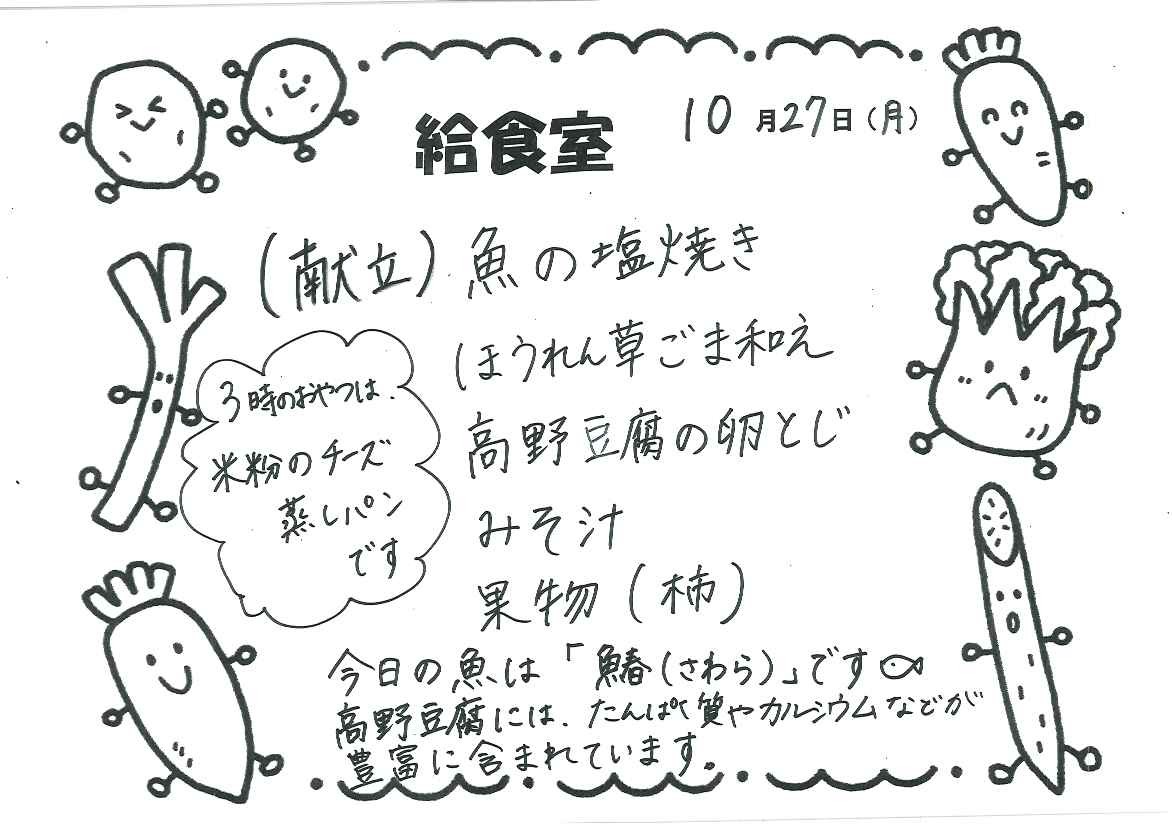 給食室
10月27日(月)
(献立)魚の塩焼き
ほうれん草ごま和え
高野豆腐の卵とじ
みそ汁
果物(柿)
3時のおやつは.
米粉のチーズ
蒸しパン
です
今日の魚は「鰆(さわら)」です
高野豆腐には、たんぱく質やカルシウムなどが
豊富に含まれています。